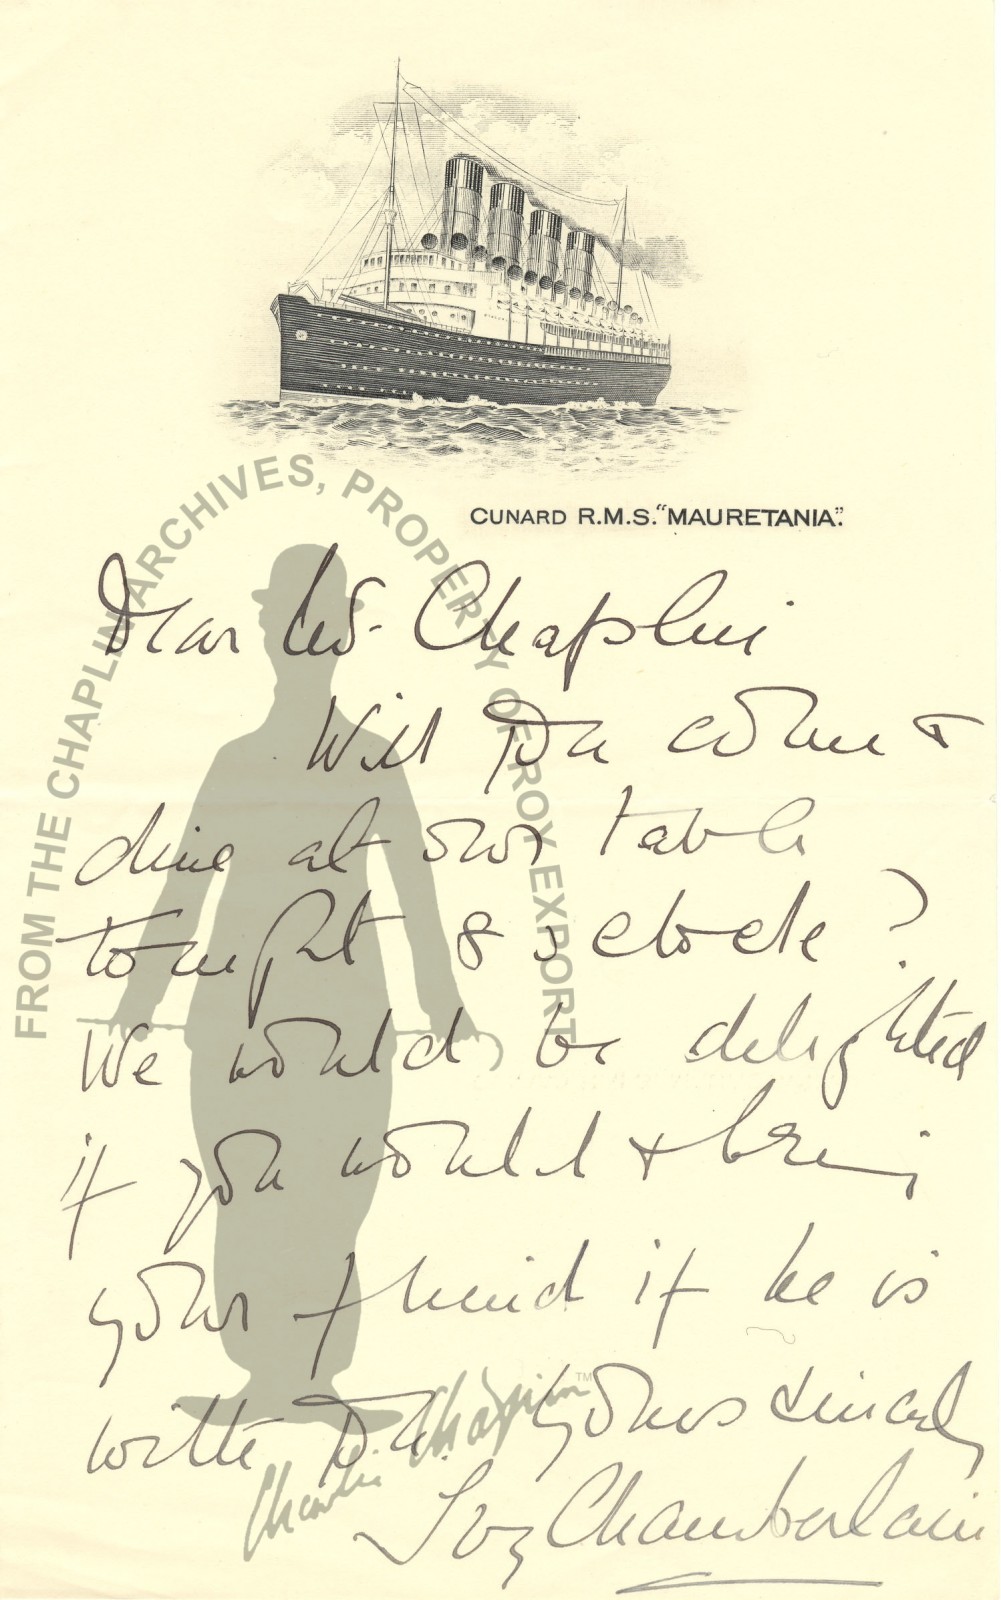 CUNARD R.M.S. "MAURETANIA".
Dear Mr. Chaplin
Will you come &
dine at our table
tonight 8 oclock?
We would be delighted
if you would & bring
your friend if he is
with you. Yours sincerely
Ivy Chamberlain
FROM THE CHAPLIN ARCHIVES, PROPERTY OF ROY EXPORT
Charlie Chaplin™